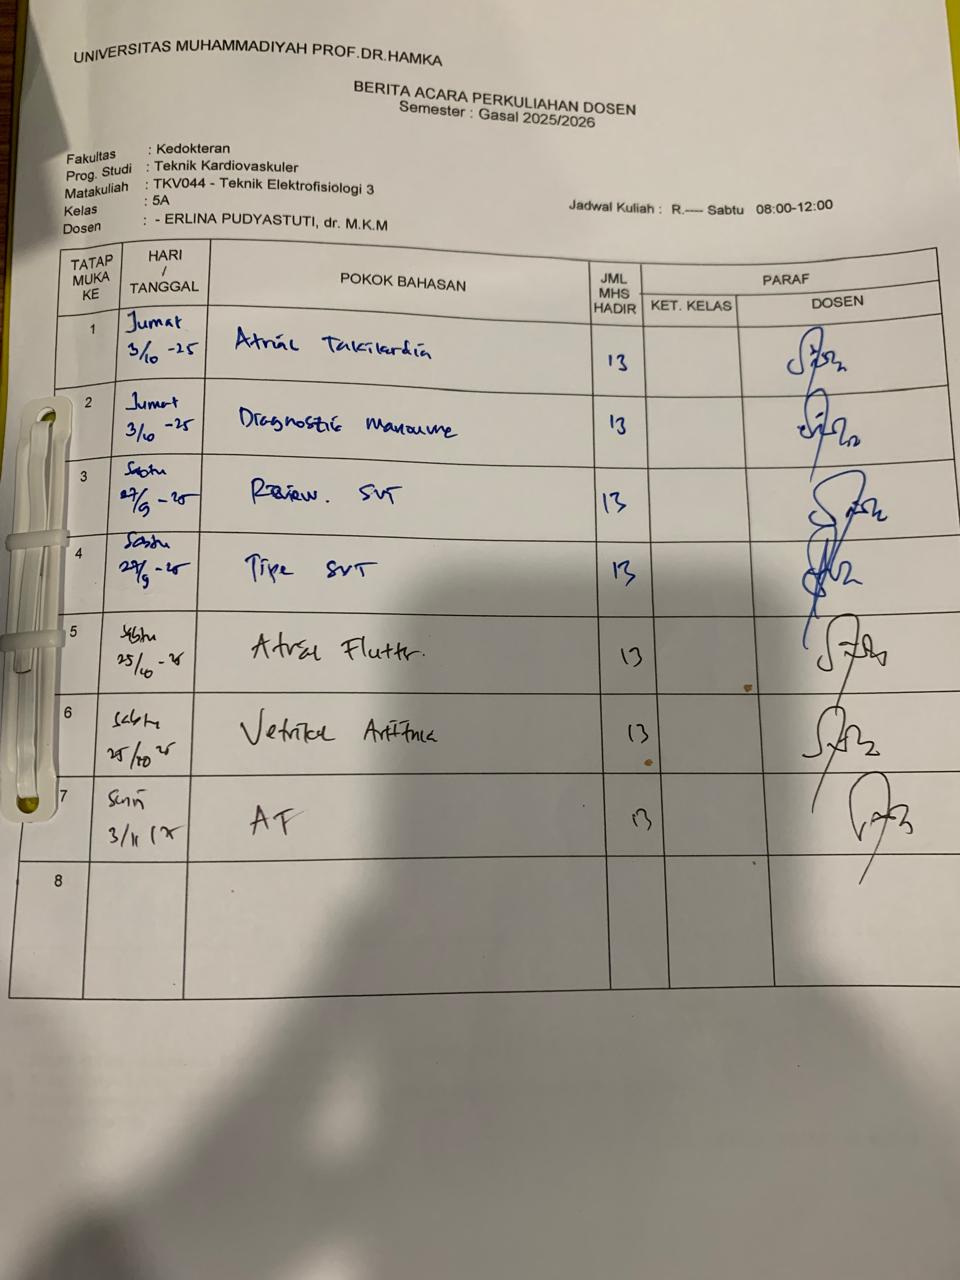 UNIVERSITAS MUHAMMADIYAH PROF.DR.HAMKA
BERITA ACARA PERKULIAHAN DOSEN
Semester : Gasal 2025/2026
Fakultas : Kedokteran
Prog. Studi : Teknik Kardiovaskuler
Matakuliah : TKV044 - Teknik Elektrofisiologi 3
Kelas : 5A
Dosen : - ERLINA PUDYASTUTI, dr. M.K.M
Jadwal Kuliah : R.---- Sabtu 08:00-12:00
TATAP MUKA KE
HARI / TANGGAL
POKOK BAHASAN
JML MHS HADIR
PARAF
KET. KELAS
DOSEN
1 Jumat 3/10 -25 Atrial Takikardia 13
2 Jumat 3/10 -25 Diagnostic 13
3 Sabtu 27/9 - 25 Review. SVT 13
4 Sabtu 27/9 - 25 Tipe SVT 13
5 Sabtu 25/10 - 25 Atrial Fluttr. 13
6 Sabtu 25/10 25 13
7 3/11 13 AF
8